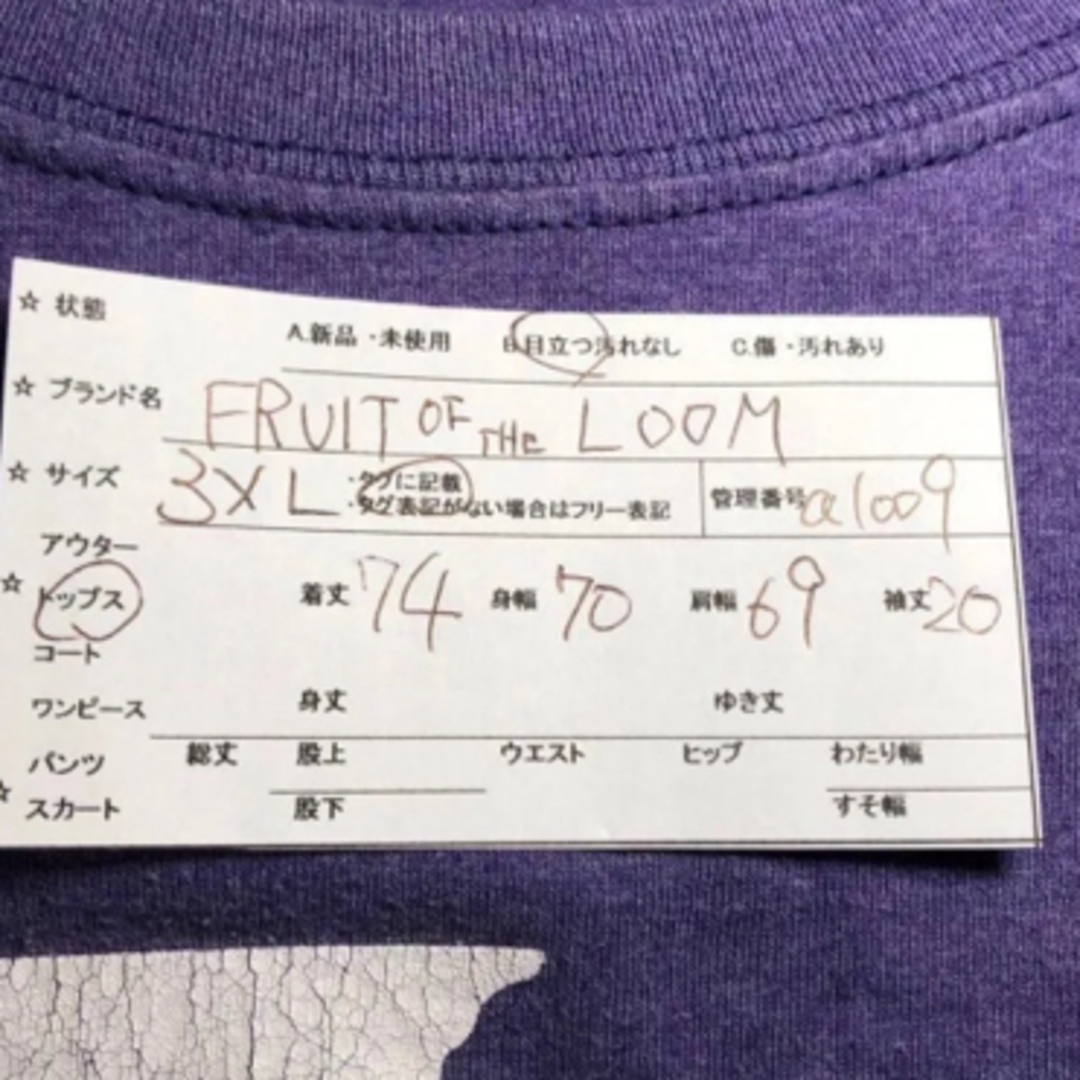 ☆ 状態
A.新品・未使用 B.目立つ汚れなし C.傷・汚れあり
☆ ブランド名 FRUIT OF THE LOOM
☆ サイズ 3XL
・タグに記載
・タグ表記がない場合はフリー表記
管理番号 a1009
アウター
☆ トップス 着丈 74 身幅 70 肩幅 69 袖丈 20
コート
ワンピース 身丈 ゆき丈
パンツ 総丈 股上 ウエスト ヒップ わたり幅
☆ スカート 股下 すそ幅